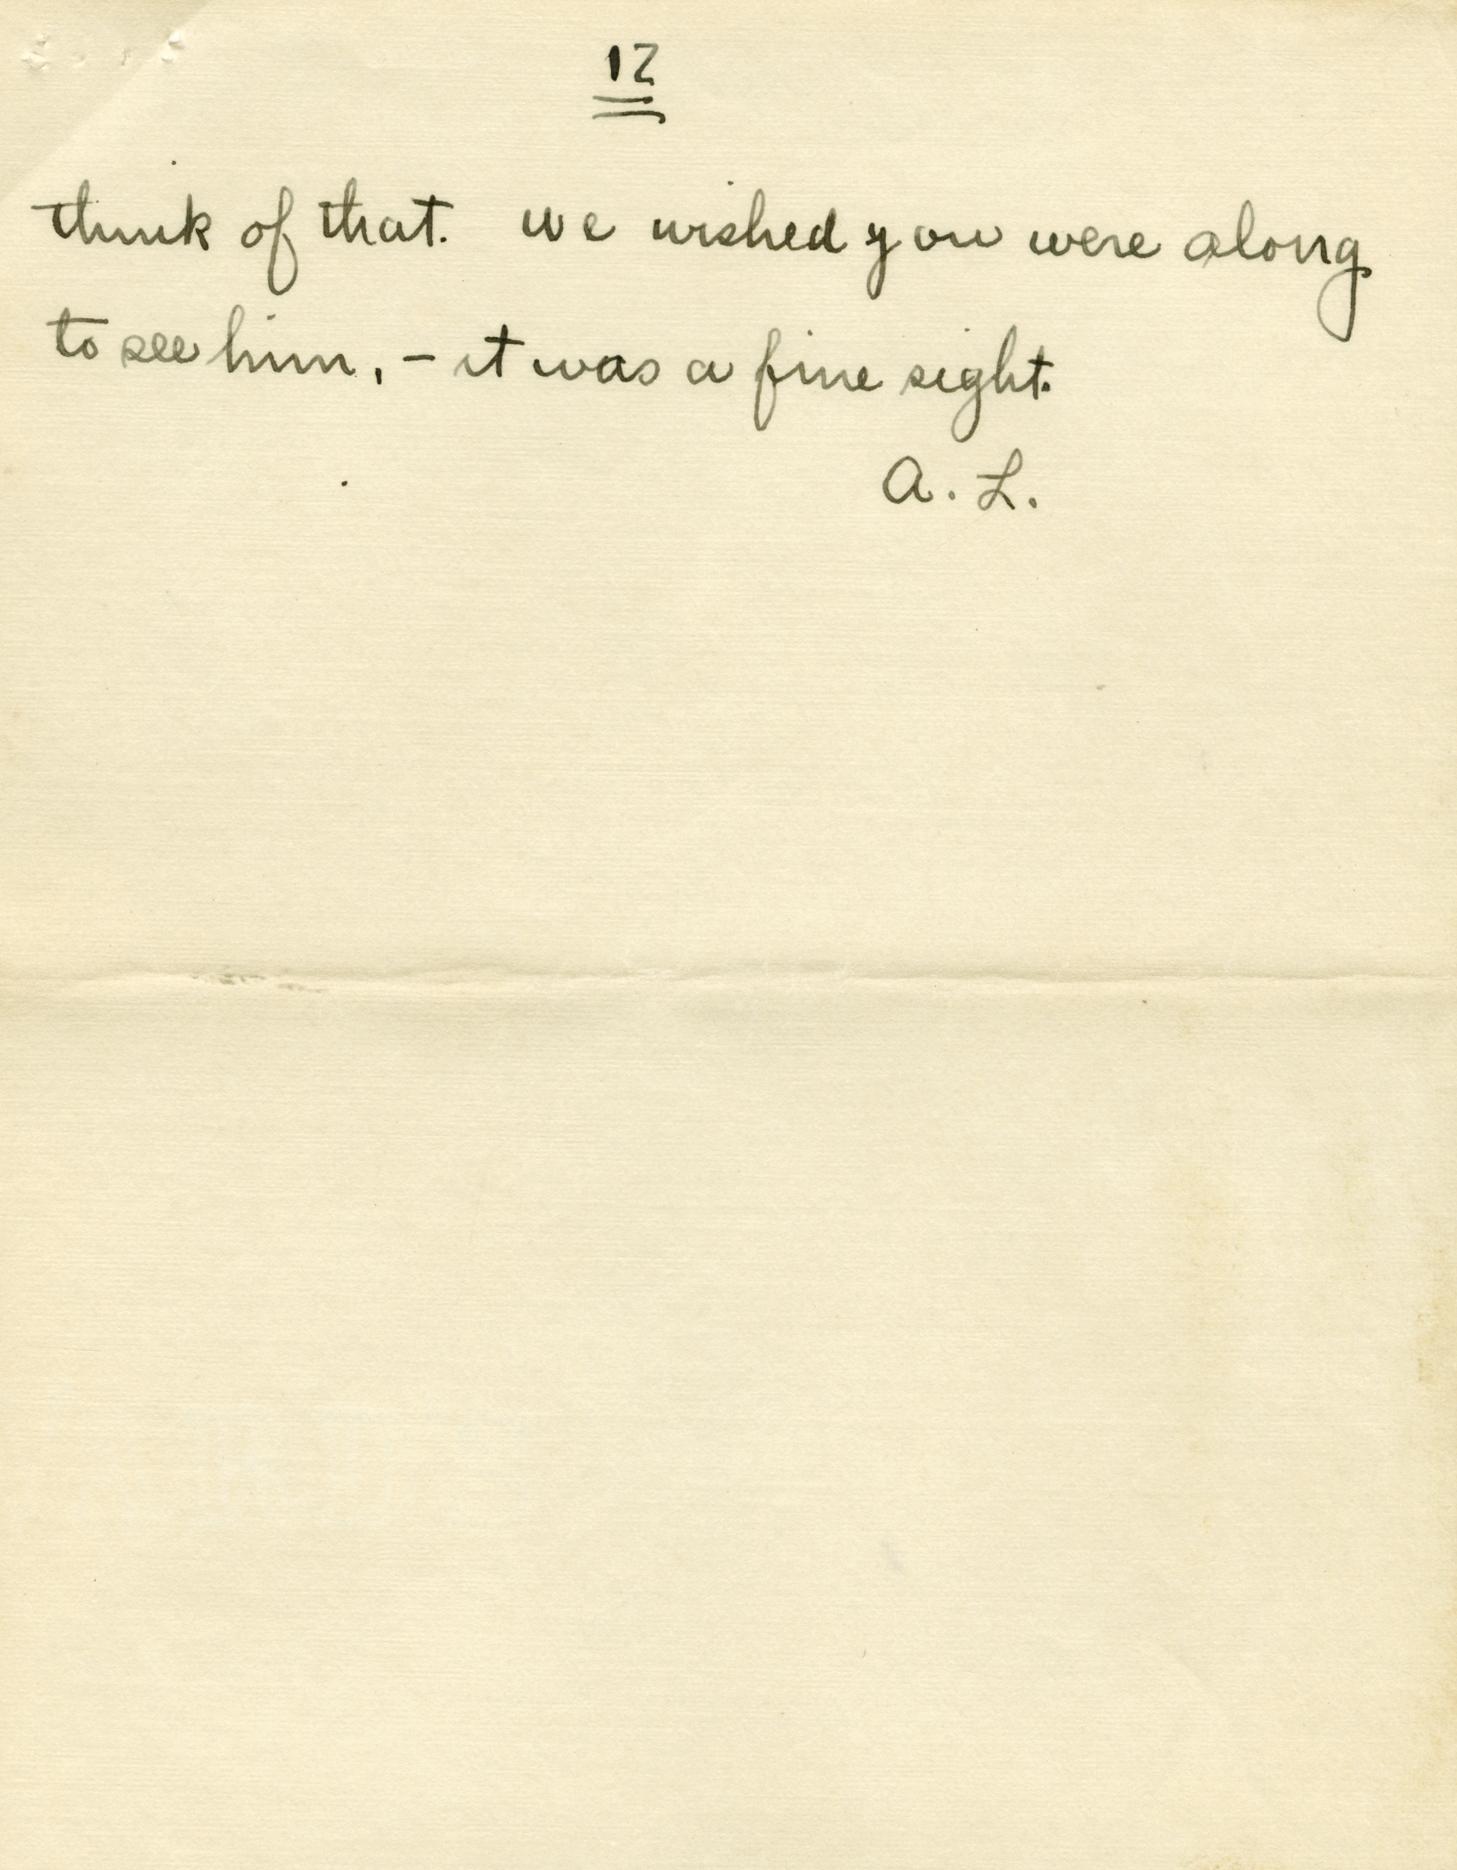 12
think of that. We wished you were along
to see him, - it was a fine sight.
A. L.